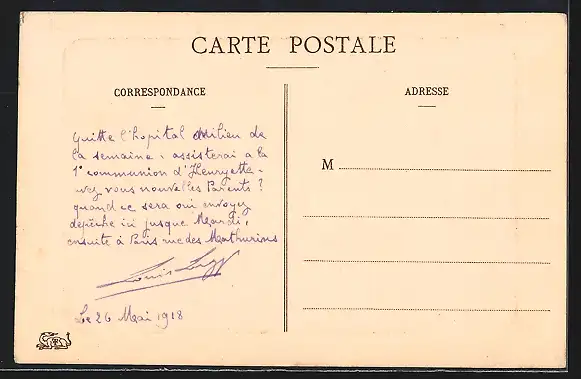 CARTE POSTALE
CORRESPONDANCE
ADRESSE
M
Quitte l'hopital Milieu de
la semaine, assisterai a la
1e communion d'Henryette -
avez vous nouvelles Parents ?
quand ce sera oui envoyez
depêche ici jusque Mardi,
ensuite à Paris rue des Mathurins
Louis
Le 26 Mai 1918